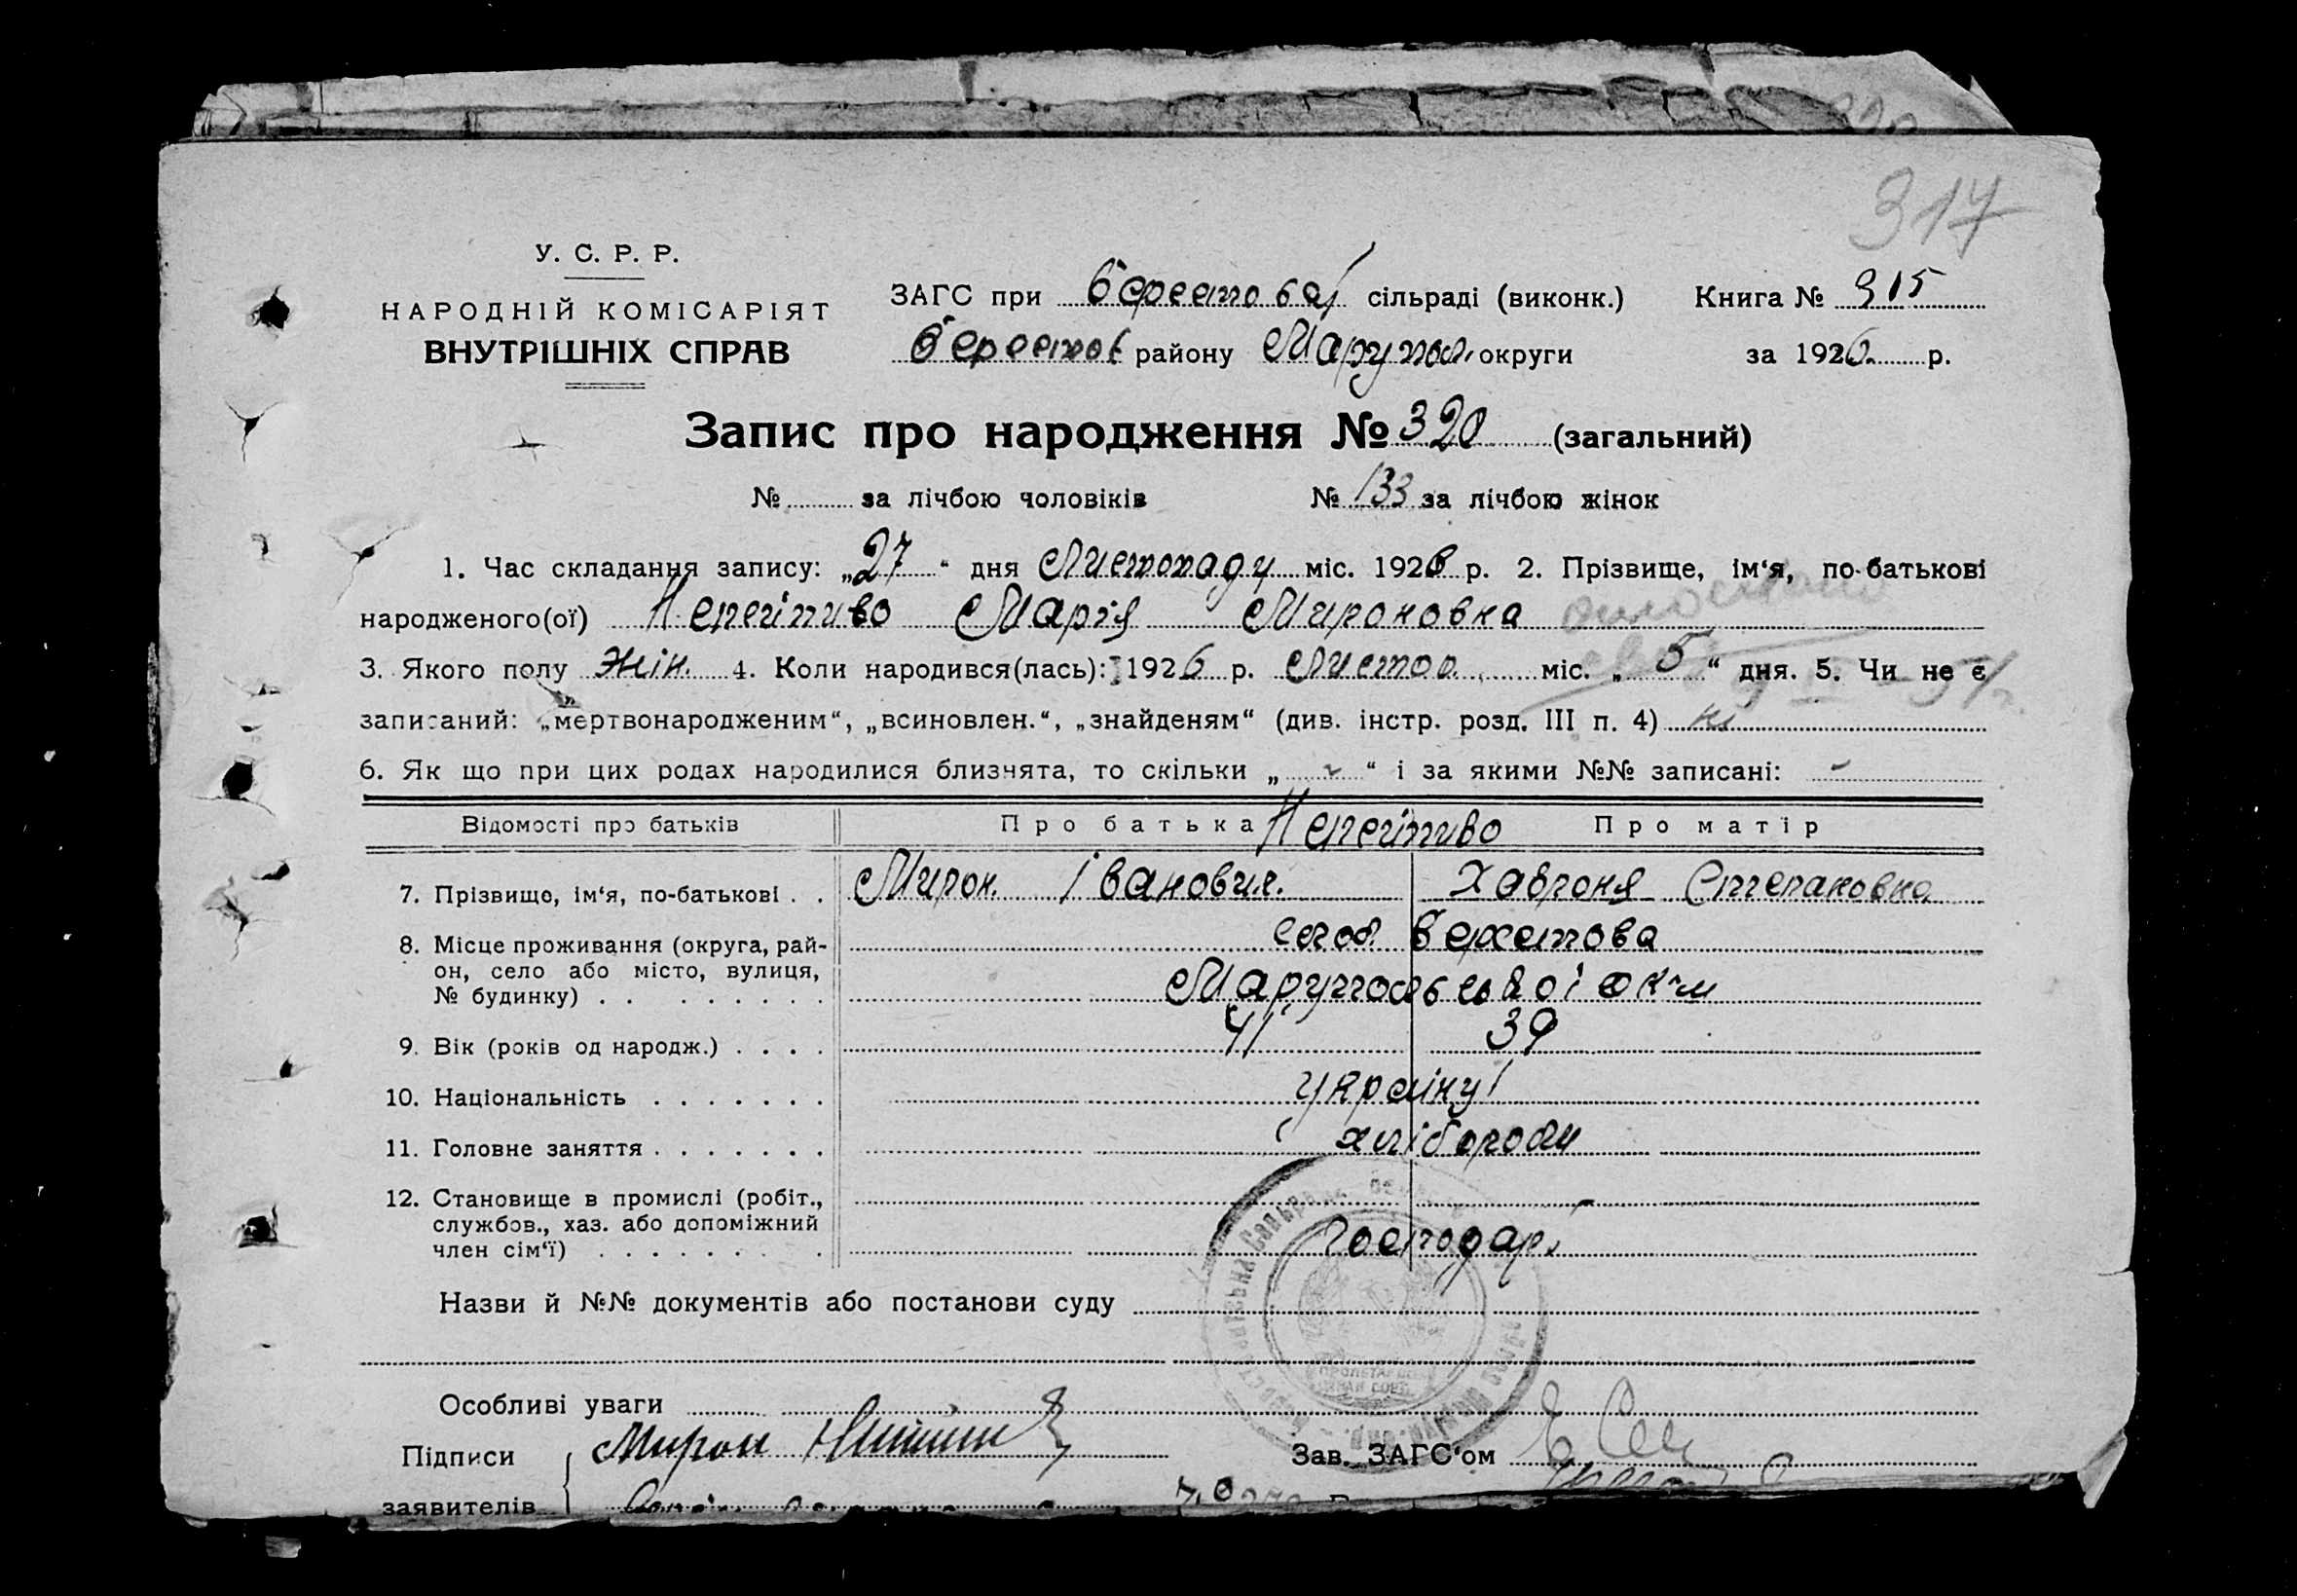 317
У. С. Р. Р.
НАРОДНІЙ КОМІСАРІЯТ
ВНУТРІШНІХ СПРАВ
ЗАГС при Берестовой сільраді (виконк.) Книга № 315
Берестов району Марупол. округи за 1926 р.
Запис про народження № 320 (загальний)
№ за лічбою чоловіків № 133 за лічбою жінок
1. Час складання запису: „27“ дня Листопаду міс. 1926 р. 2. Прізвище, ім‘я, по-батькові
народженого(ої) Непейпиво Марія Мироновна
3. Якого полу жін. 4. Коли народився(лась): 1926 р. Листоп. міс. „5“ дня. 5. Чи не є
записаний: „мертвонародженим“, „всиновлен.“, „знайденям“ (див. інстр. розд. III п. 4) ні
6. Як що при цих родах народилися близнята, то скільки „-“ і за якими №№ записані: -
Відомості про батьків Про батька Непейпиво Про матір
7. Прізвище, ім‘я, по-батькові . . Мирон. Іванович. Хавроня Степановна
8. Місце проживання (округа, рай- слоб. Берестова
он, село або місто, вулиця, Марупольської окр
№ будинку) . . . . . . . . .
9. Вік (років од народж.) . . . . 41 39
10. Національність . . . . . . . україні
11. Головне заняття . . . . . . . хлібороби
12. Становище в промислі (робіт.,
службов., хаз. або допоміжний господарі
член сім‘ї) . . . . . . . . .
Назви й №№ документів або постанови суду
Особливі уваги
Підписи Мирон Зав. ЗАГС‘ом
заявителів